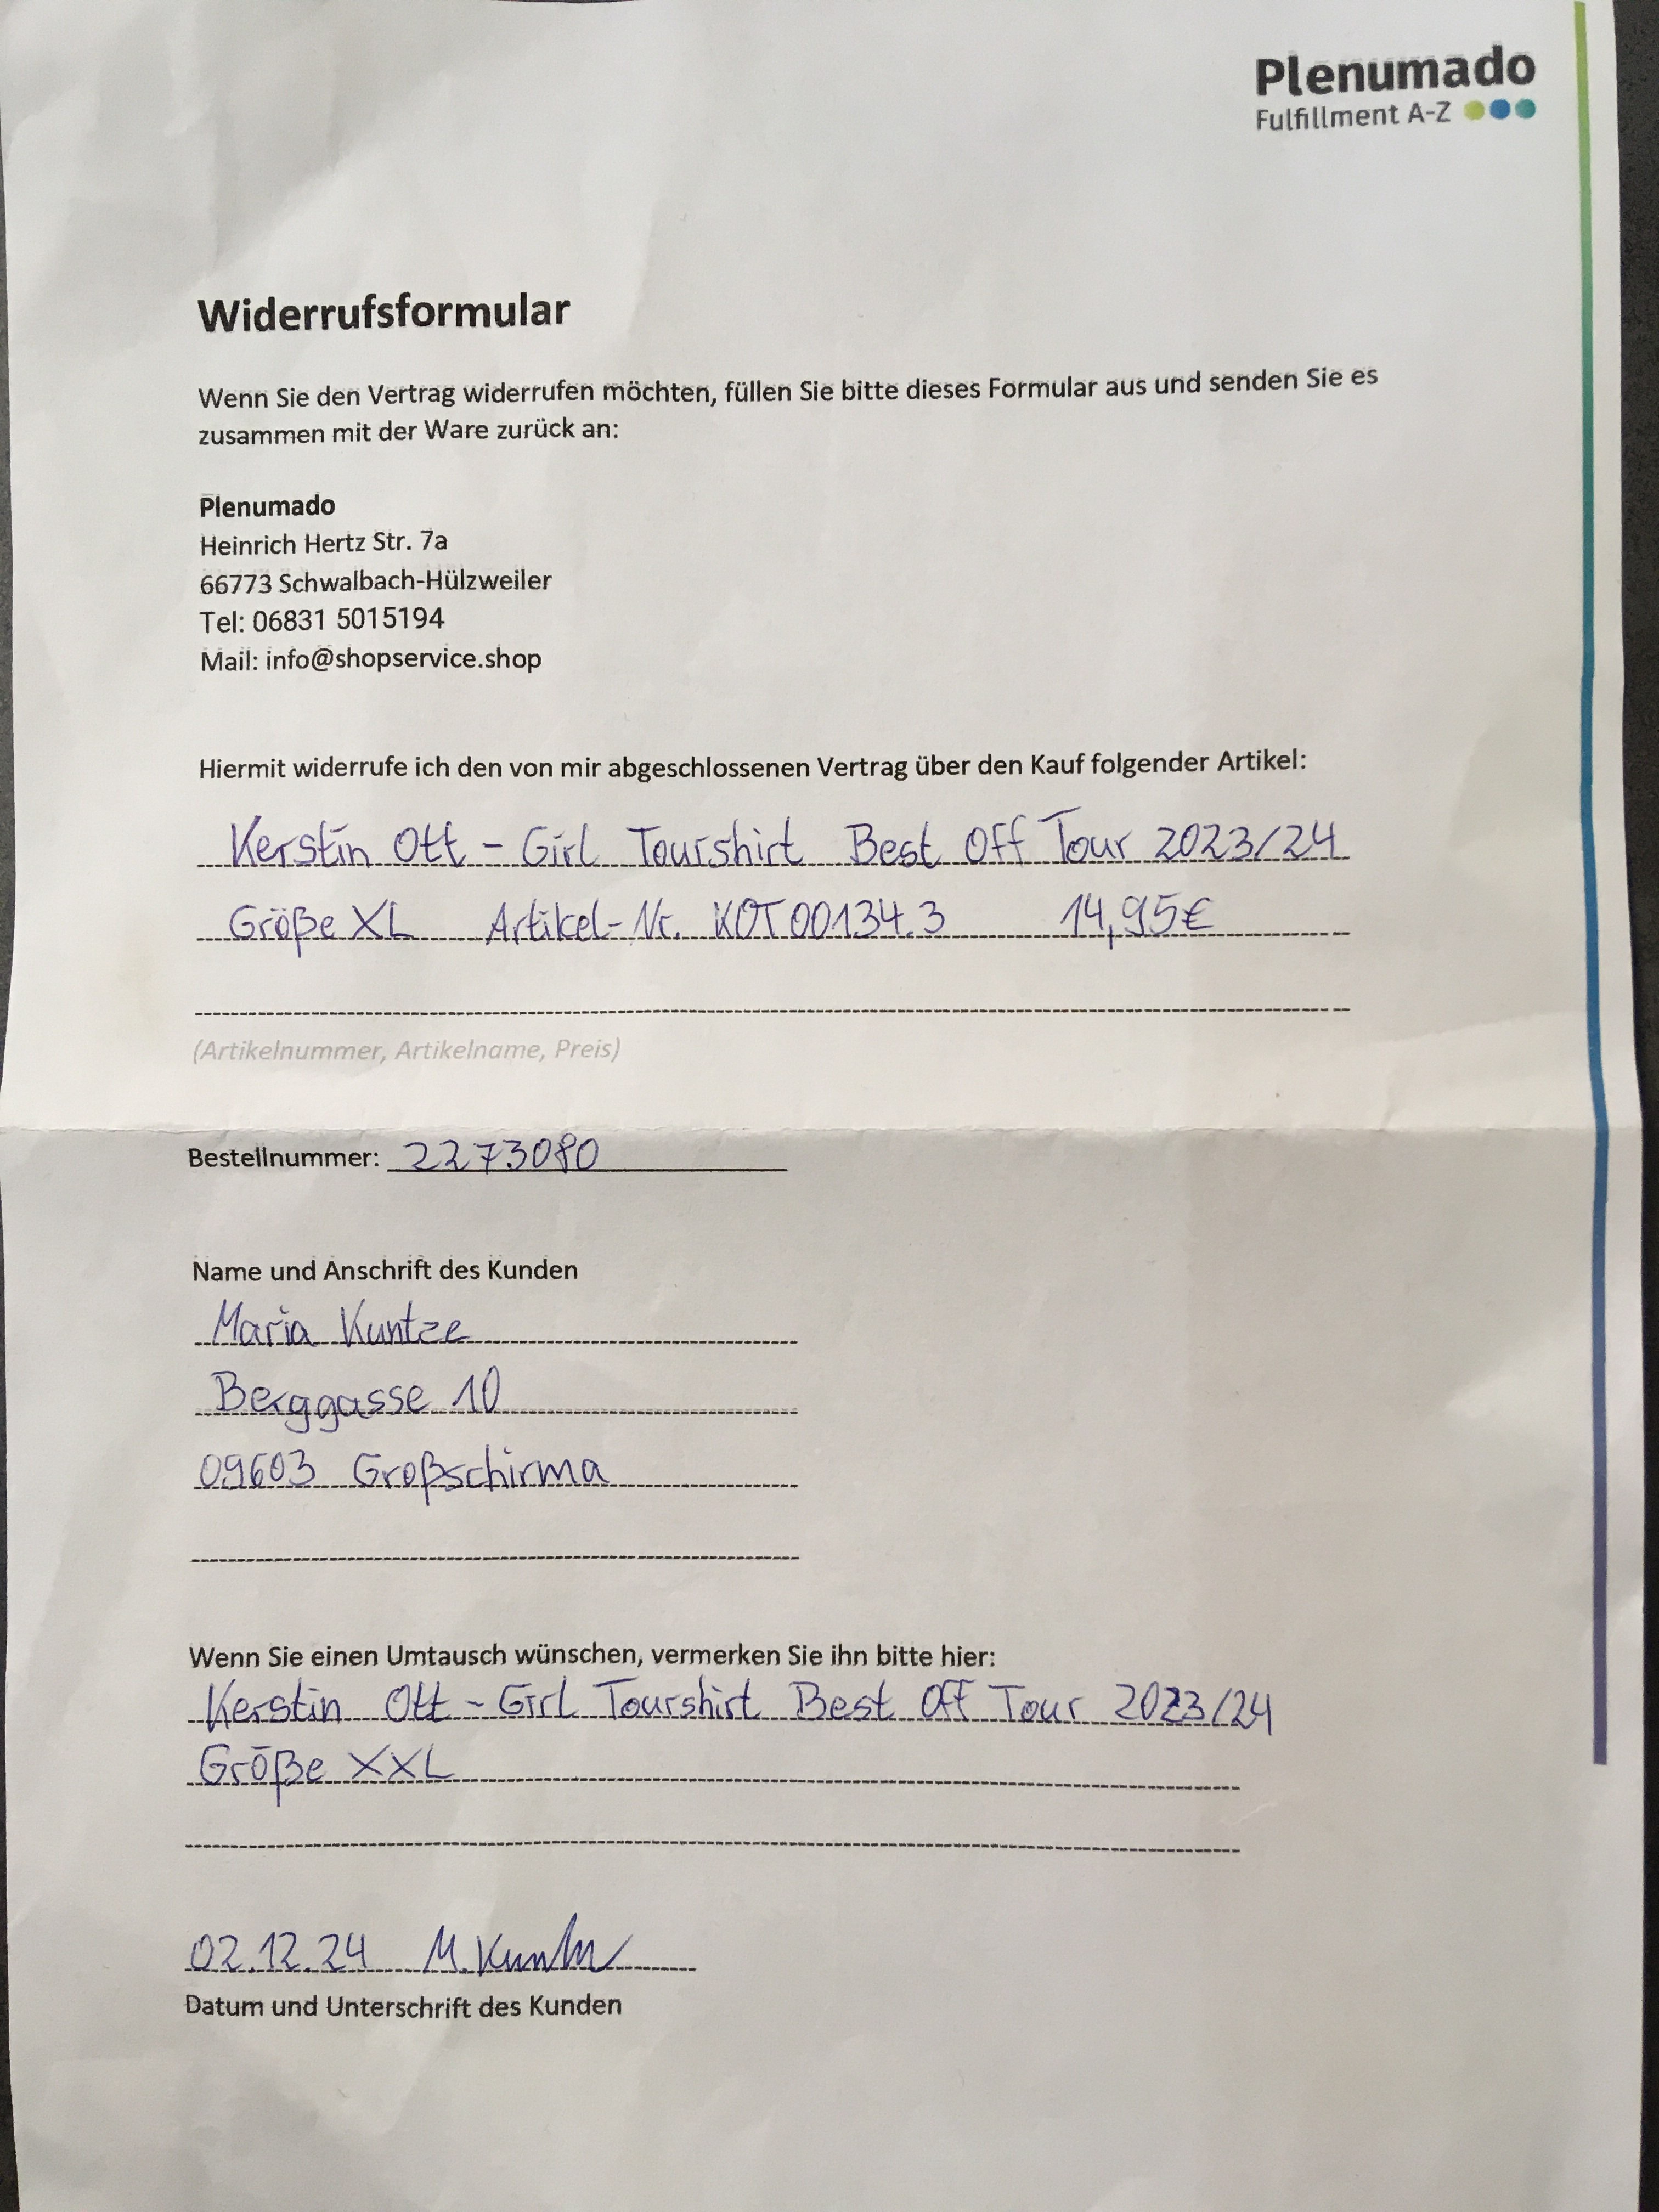 Plenumado
Fulfillment A-Z
Widerrufsformular
Wenn Sie den Vertrag widerrufen möchten, füllen Sie bitte dieses Formular aus und senden Sie es
zusammen mit der Ware zurück an:
Plenumado
Heinrich Hertz Str. 7a
66773 Schwalbach-Hülzweiler
Tel: 06831 5015194
Mail: info@shopservice.shop
Hiermit widerrufe ich den von mir abgeschlossenen Vertrag über den Kauf folgender Artikel:
Kerstin Ott - Girl Tourshirt Best Off Tour 2023/24
Größe XL Artikel-Nr. KOT00134.3 14,95€
(Artikelnummer, Artikelname, Preis)
Bestellnummer: 2273080
Name und Anschrift des Kunden
Maria Kuntze
Berggasse 10
09603 Großschirma
Wenn Sie einen Umtausch wünschen, vermerken Sie ihn bitte hier:
Kerstin Ott - Girl Tourshirt Best Off Tour 2023/24
Größe XXL
02.12.24 M.
Datum und Unterschrift des Kunden